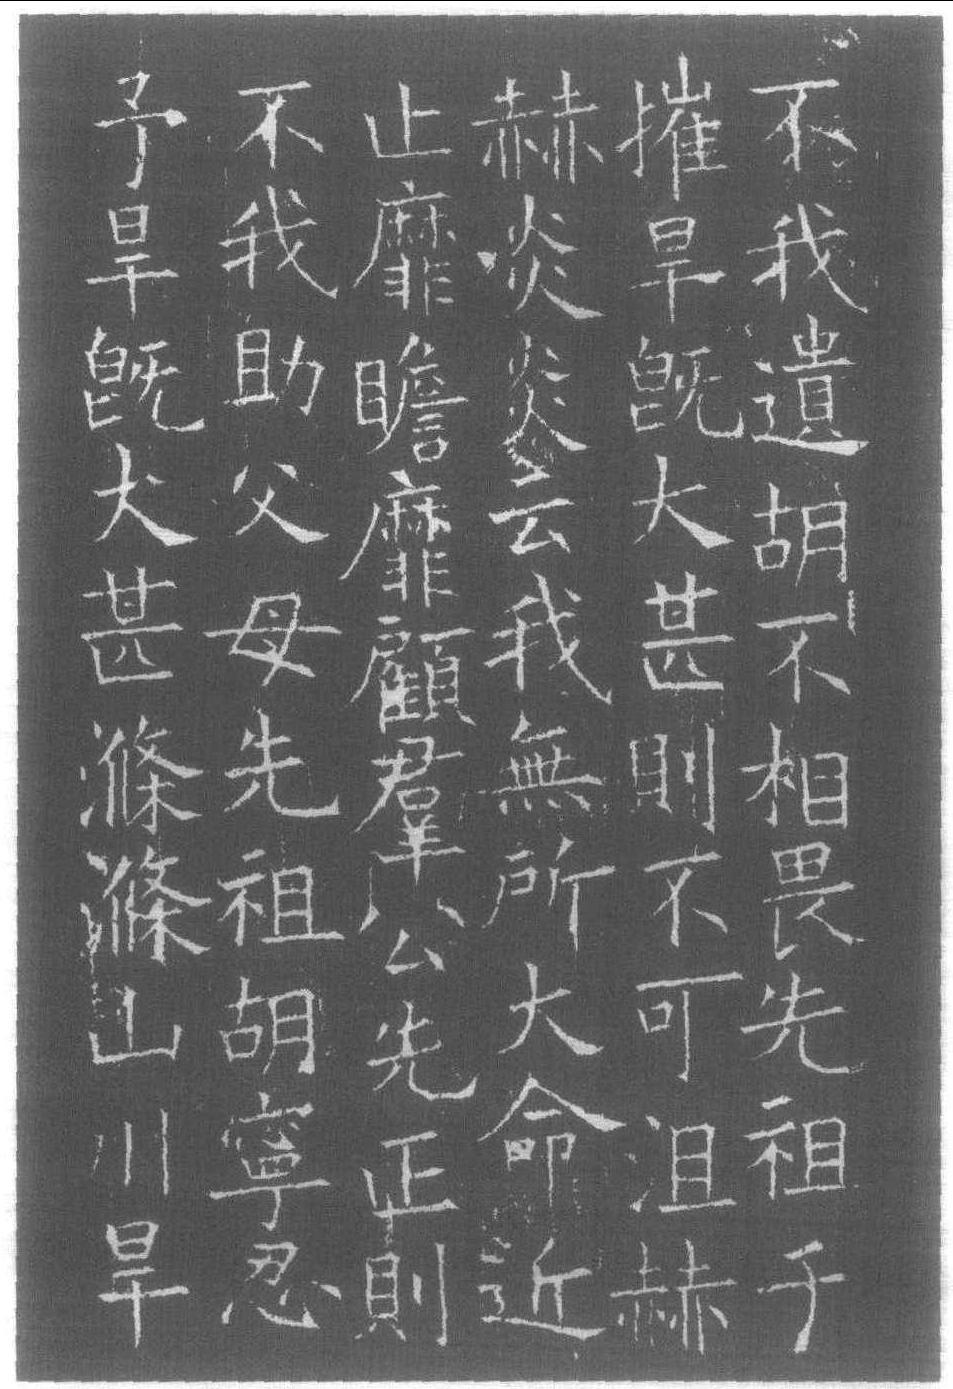 不我遺胡不相畏先祖于
摧旱旣大甚則不可沮赫
赫炎炎云我無所大命近
止靡瞻靡顧羣公先正則
不我助父母先祖胡寧忍
予旱旣大甚滌滌山川旱